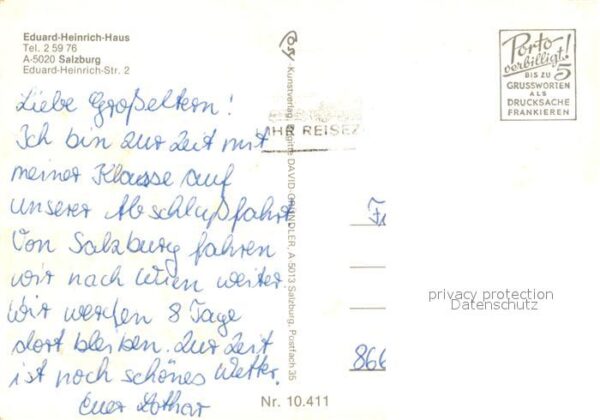 Eduard-Heinrich-Haus
Tel. 2 59 76
A-5020 Salzburg
Eduard-Heinrich-Str. 2
Liebe Großeltern!
Ich bin zur Zeit mit
meiner Klasse auf
unserer Abschlußfahrt
Von Salzburg fahren
wir nach Wien weiter
Wir werden 8 Tage
dort bleiben. Zur Zeit
ist noch schönes Wetter.
Euer Lothar
Kunstverlag DAVID GRÜNDLER, A-5013 Salzburg, Postfach 35
Nr. 10.411
REISEZ
Porto
verbilligt!
BIS ZU 5
GRUSSWORTEN
ALS
DRUCKSACHE
FRANKIEREN
866
privacy protection
Datenschutz